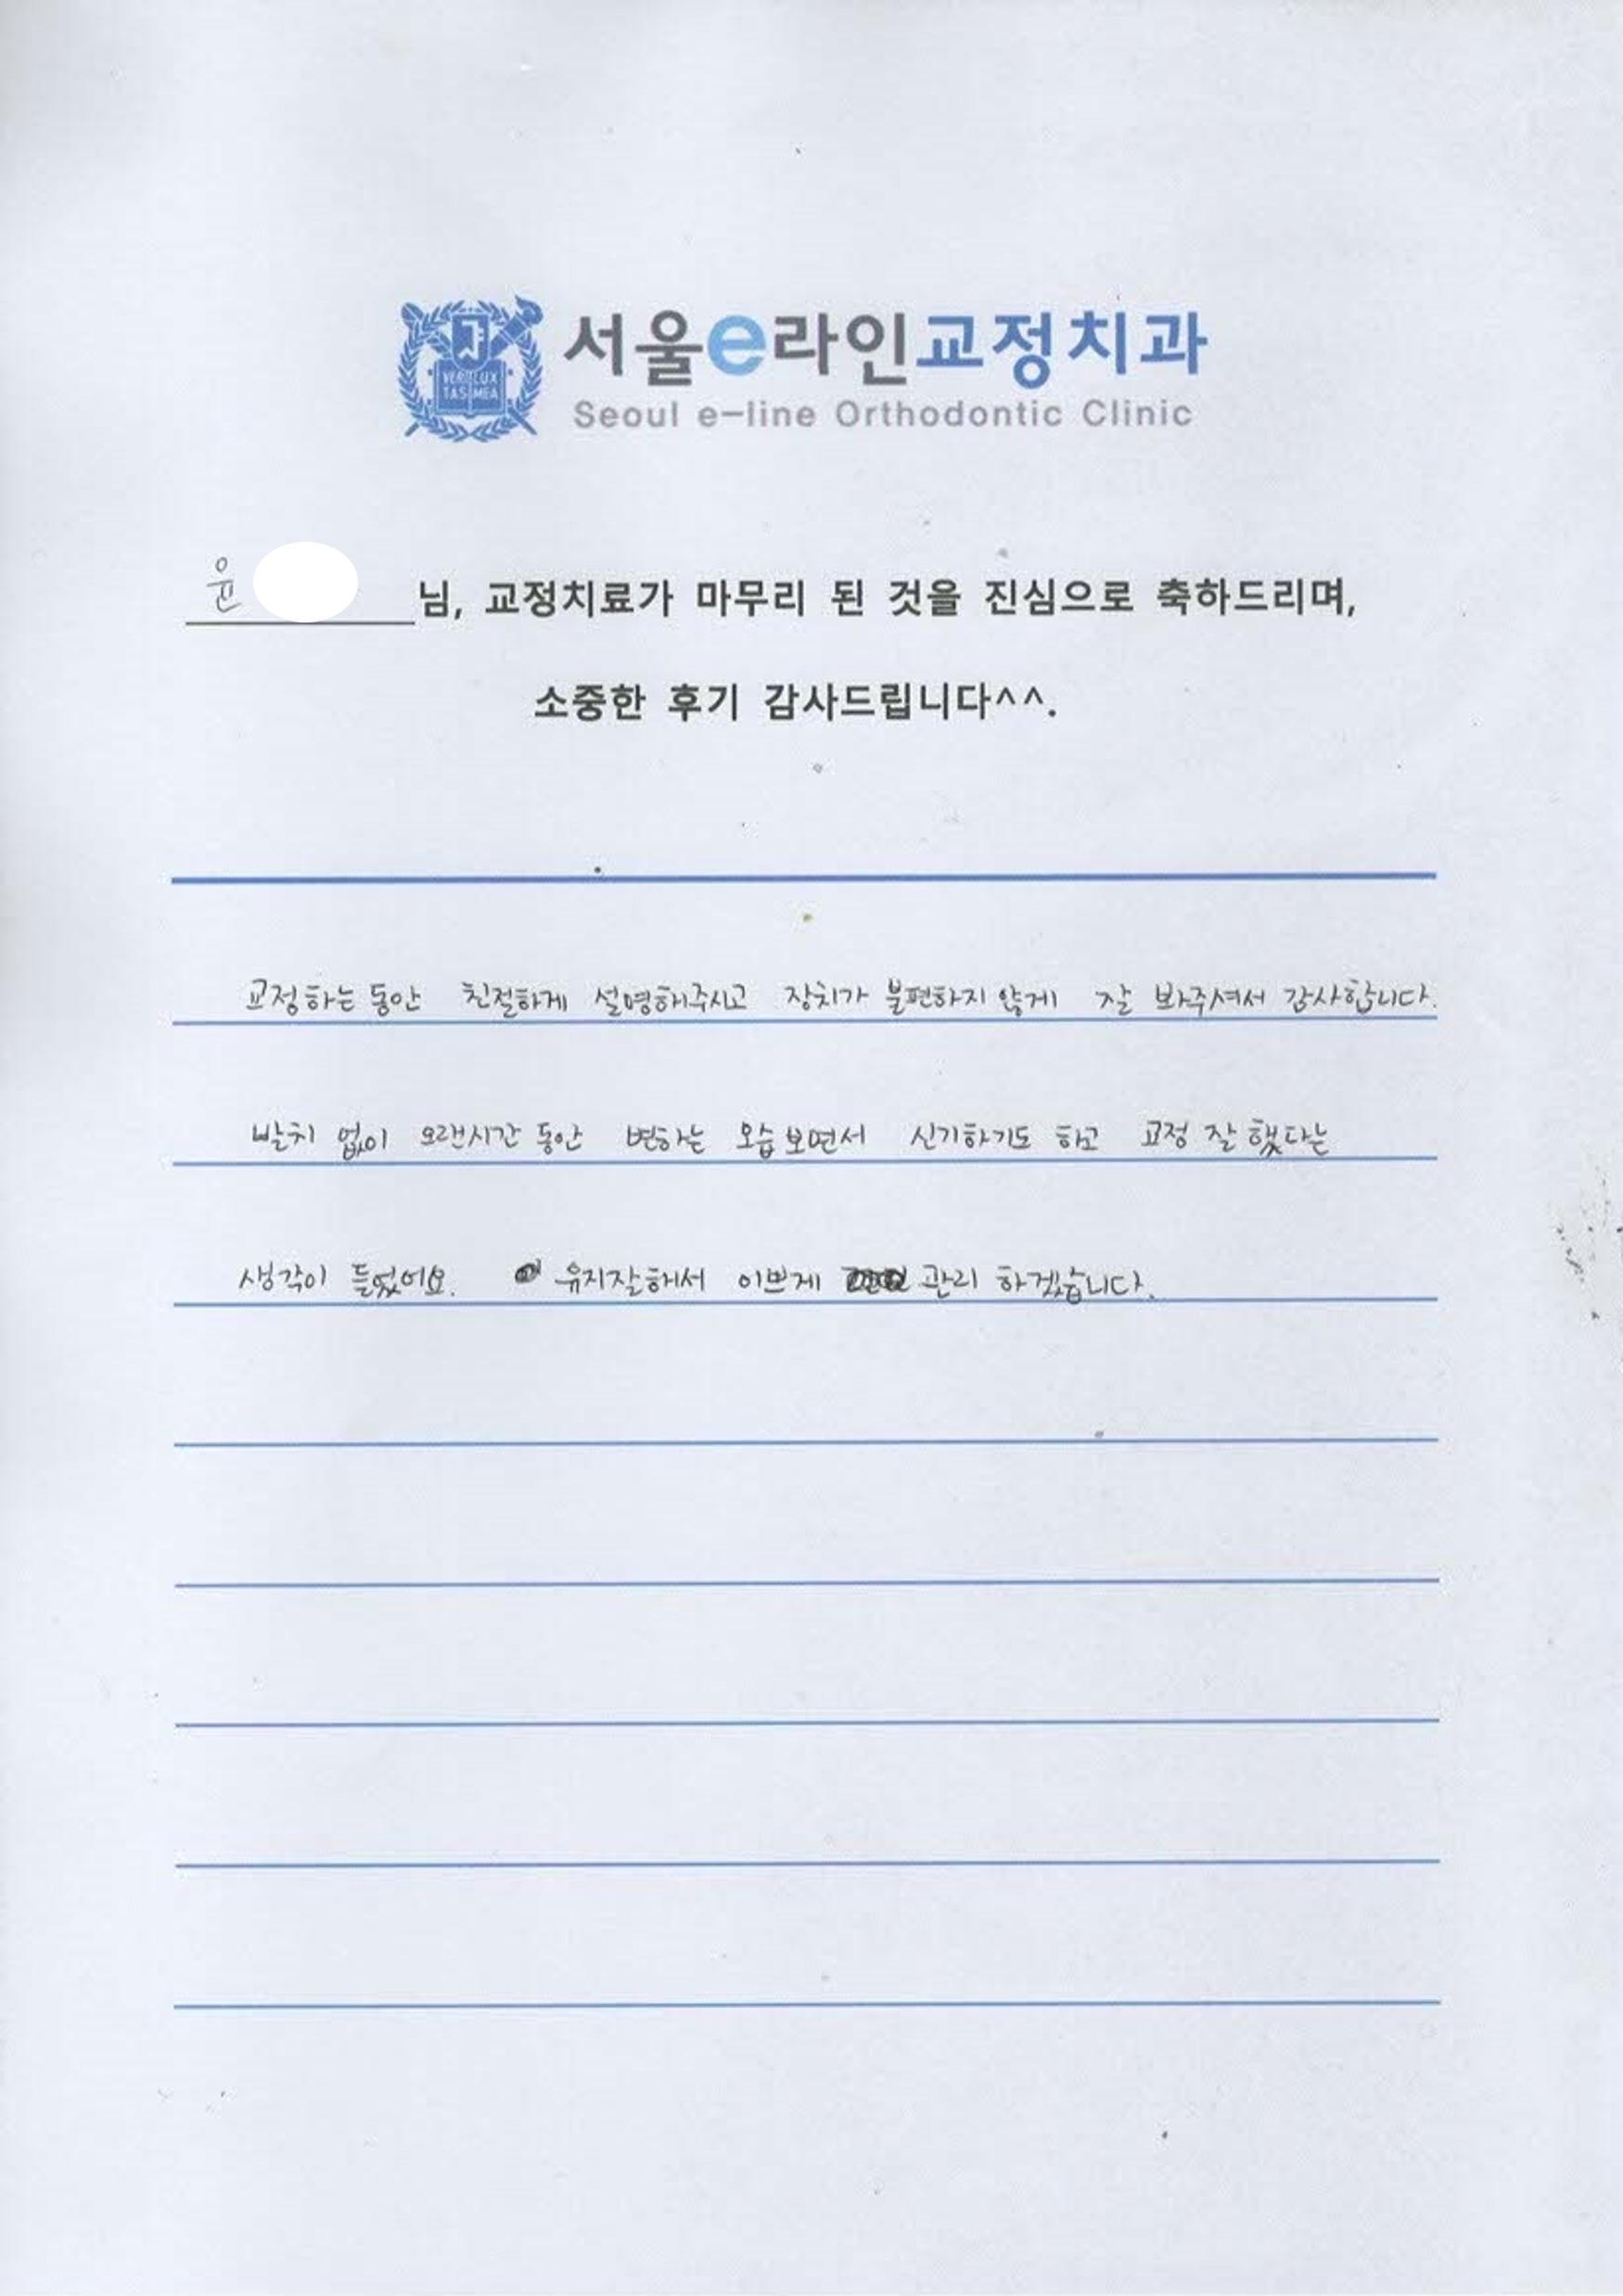 VERI LUX
TAS MEA
서울e라인교정치과
Seoul e-line Orthodontic Clinic
윤 님, 교정치료가 마무리 된 것을 진심으로 축하드리며,
소중한 후기 감사드립니다^^.
교정하는 동안 친절하게 설명해주시고 장치가 불편하지 않게 잘 봐주셔서 감사합니다.
발치 없이 오랜시간 동안 변하는 모습 보면서 신기하기도 하고 교정 잘 했다는
생각이 들었어요. 유지잘해서 이쁘게 관리 하겠습니다.